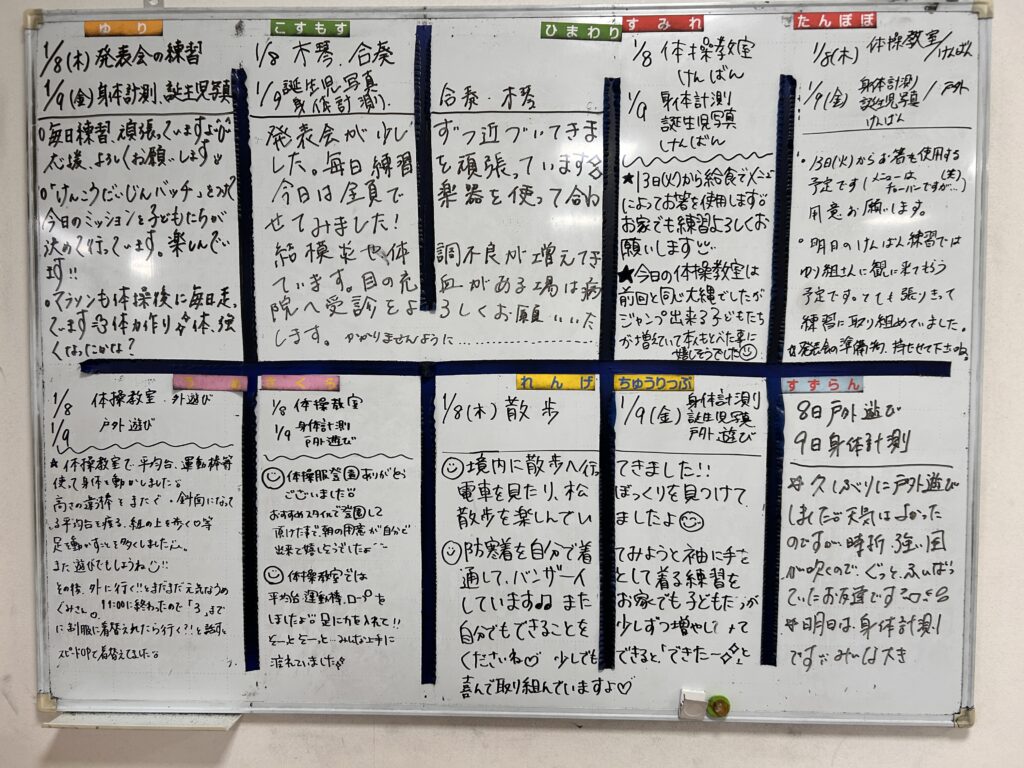 ゆり
1/8(木) 発表会の練習
1/9(金) 身体計測、誕生児写真
○毎日練習、頑張っています
応援、よろしくお願いします
○「けんこうだいじんバッチ」を
今日のミッションを子どもたちが
決めて行っています。楽しんでい
ます!!
○マラソンも体操後に毎日走っ
ています 体力作り 体、強
くなったかな?
こすもす ひまわり
1/8 木琴、合奏 合奏・木琴
1/9 誕生児写真
身体計測
発表会が少しずつ近づいてきま
した。毎日練習を頑張っています
今日は全員で楽器を使って合わ
せてみました!
結膜炎や体調不良が増えてき
ています。目の充血がある場合は病
院へ受診をよろしくお願いいた
します。かかりませんように
すみれ
1/8 体操教室
けんばん
1/9 身体計測
誕生児写真
けんばん
★13日(火)から給食でメニュー
によってお箸を使用します
お家でも練習よろしくお
願いします
★今日の体操教室は
前回と同じ大縄でしたが
ジャンプ出来る子どもたち
が増えていて本人もとべた事に
嬉しそうでした
たんぽぽ
1/8(木) 体操教室/けんばん
1/9(金) 身体計測 誕生児写真 けんばん / 戸外
○13日(火)からお箸も使用する
予定です(メニューは チャーハンですが…(笑))
用意お願いします。
○明日のけんばん練習では
ゆり組さんに観に来てもらう
予定です。とても張りきって
練習に取り組めていました。
☆発表会の準備物、持たせて下さいね。
1/8 体操教室・外遊び
1/9 戸外遊び
★体操教室で平均台、運動棒等
使って身体を動かしました
高さの違う棒をまたぐ・斜面になって
る平均台を渡る、縄の上を歩く等
足を動かすことを多くしました
また遊びでもしようね
その後、外に行く!!とまだまだ元気なうめ
ぐみさん。11:00に終わったので「3」まで
に制服に着替えれたら行く?!と話すと
スピードUPで着替えてました
さくら
1/8 体操教室
1/9 身体計測
戸外遊び
体操服登園ありがとう
ございました
おすすめスタイルで登園して
頂けたので朝の用意が自分で
出来て嬉しそうでしたよ
体操教室では
平均台、運動棒、ロープを
しましたよ 足に力を入れて!!
そーっとそーっと…みんな上手に
渡れていました
れんげ ちゅうりっぷ
1/8(木) 散歩 1/9(金) 身体計測
誕生児写真
戸外遊び
境内に散歩へ行ってきました!!
電車を見たり、松ぼっくりを見つけて
散歩を楽しんでいましたよ
防寒着を自分で着てみようと袖に手を
通して、バンザーイとして着る練習を
しています♫ また お家でも子どもたちが
自分でもできることを少しずつ増やして
くださいね♡ 少しでもできると「できたー✧」と
喜んで取り組んでいますよ♡
すずらん
8日戸外遊び
9日身体計測
久しぶりに戸外遊び
しました お天気はよかった
のですが時折、強い風
が吹くので、ぐっと、ふんばっ
ていたお友達です
明日は身体計測
です みんな大き